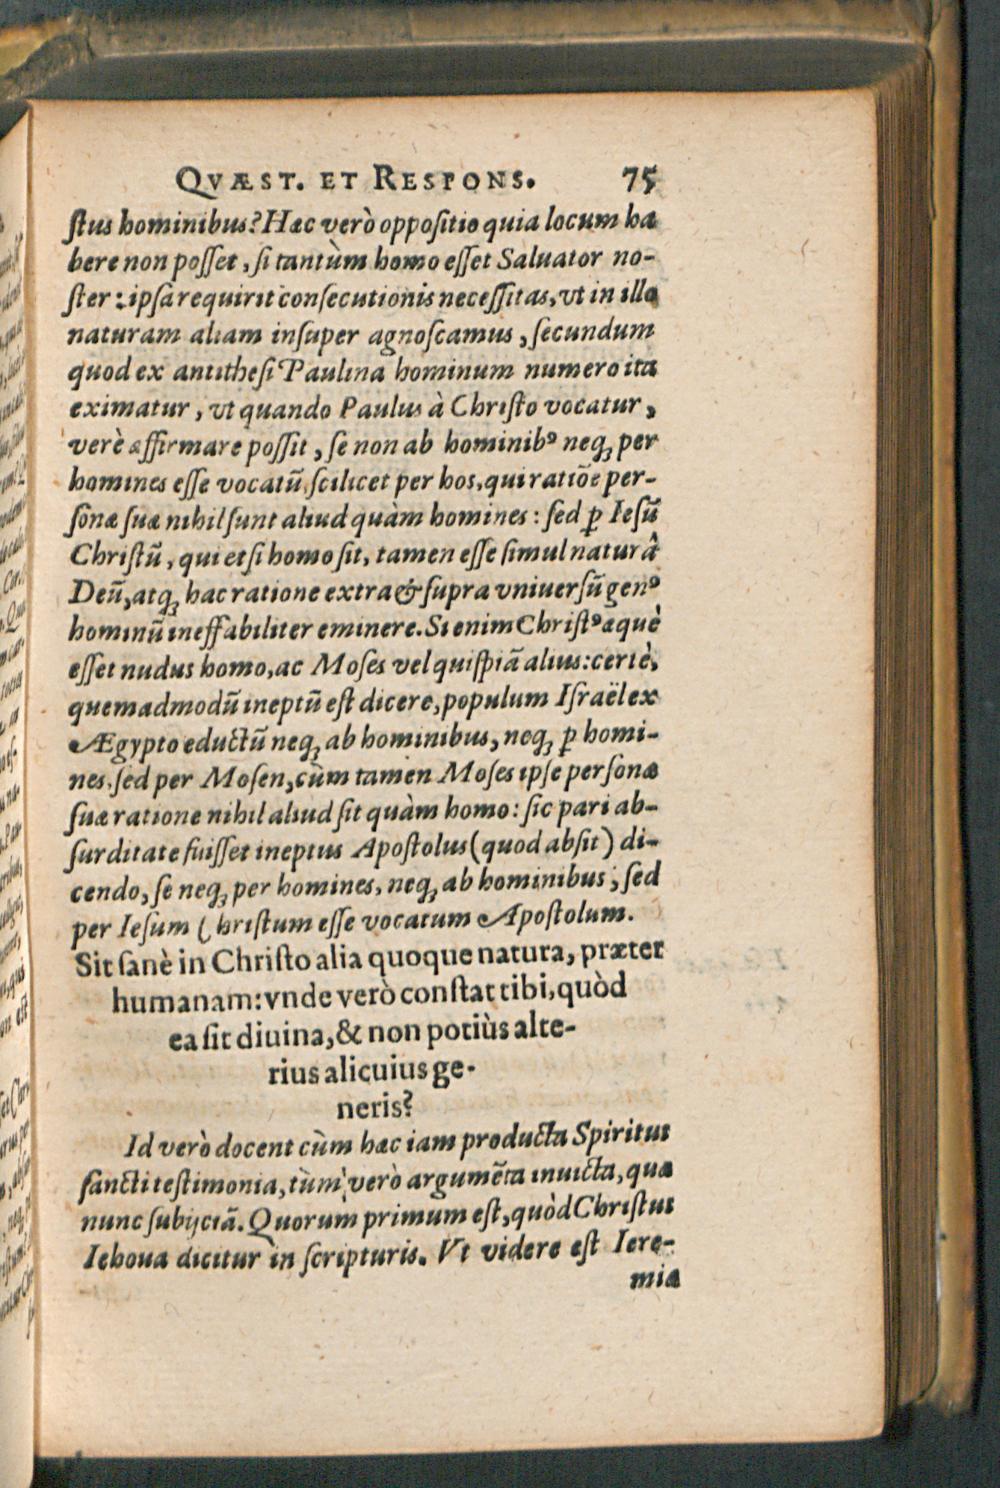 QVÆST. ET RESPONS. 75
ſtus hominibus? Hæc verò oppoſitio quia locum ha
bere non poſſet, ſi tantùm homo eſſet Saluator no-
ſter: ipſa requirit conſecutionis neceſſitas, vt in illo
naturam aliam inſuper agnoſcamus, ſecundum
quod ex antitheſi Paulina hominum numero ita
eximatur, vt quando Paulus à Chriſto vocatur,
verè affirmare poſſit, ſe non ab hominibꝰ neqꝫ per
homines eſſe vocatũ, ſcilicet per hos, qui ratiōe per-
ſonæ ſuæ nihil ſunt aliud quàm homines: ſed ꝑ Ieſũ
Chriſtũ, qui etſi homo ſit, tamen eſſe ſimul naturâ
Deũ, atqꝫ hac ratione extra & ſupra vniuerſũ genꝰ
hominũ ineffabiliter eminere. Si enim Chriſtꝰ æquè
eſſet nudus homo, ac Moſes vel quiſpiã alius: certè,
quemadmodũ ineptũ eſt dicere, populum Iſraël ex
Ægypto eductũ neqꝫ ab hominibus, neqꝫ ꝑ homi-
nes, ſed per Moſen, cùm tamen Moſes ipſe perſonæ
ſuæ ratione nihil aliud ſit quàm homo: ſic pari ab-
ſurditate fuiſſet ineptus Apoſtolus (quod abſit) di-
cendo, ſe neqꝫ per homines, neqꝫ ab hominibus, ſed
per Ieſum Chriſtum eſſe vocatum Apoſtolum.
Sit ſanè in Chriſto alia quoque natura, præter
humanam: vnde verò conſtat tibi, quòd
ea ſit diuina, & non potiùs alte-
rius alicuius ge-
neris?
Id verò docent cùm hæc iam producta Spiritus
ſancti teſtimonia, tùm verò argumēta inuicta, quæ
nunc ſubijciã. Quorum primum eſt, quòd Chriſtus
Iehoua dicitur in ſcripturis. Vt videre eſt Iere-
miæ